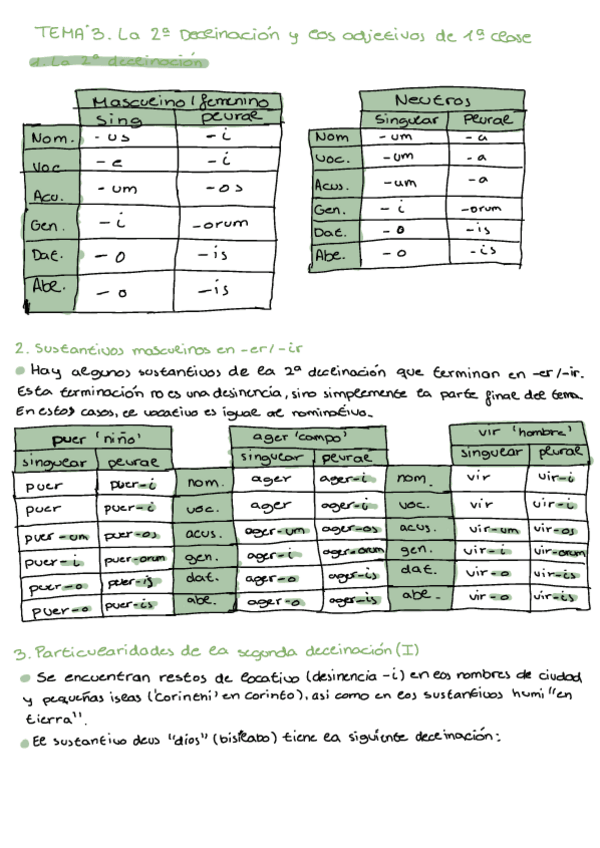 TEMA 3. La 2ª Declinación y los adjetivos de 1ª clase
1. La 2ª declinación
Masculino / femenino
sing plural
Nom. -us -i
Voc -e -i
Acu. -um -os
Gen. -i -orum
Dat. -o -is
Abl. -o -is
Neutros
singular Plural
Nom -um -a
Voc. -um -a
Acus. -um -a
Gen. -i -orum
Dat. -o -is
Abl. -o -is
2. Sustantivos masculinos en -er/-ir
Hay algunos sustantivos de la 2ª declinación que terminan en -er/-ir.
Esta terminación no es una desinencia, sino simplemente la parte final del tema.
En estos casos, el vocativo es igual al nominativo.
puer 'niño' ager 'campo' vir 'hombre'
singular plural singular plural singular plural
puer puer-i nom. ager ager-i nom. vir vir-i
puer puer-i voc. ager ager-i voc. vir vir-i
puer-um puer-os acus. ager-um ager-os acus. vir-um vir-os
puer-i puer-orum gen. ager-i ager-orum gen. vir-i vir-orum
puer-o puer-is dat. ager-o ager-is dat. vir-o vir-is
puer-o puer-is abl. ager-o ager-is abl. vir-o vir-is
3. Particularidades de la segunda declinación (I)
Se encuentran restos de locativo (desinencia -i) en los nombres de ciudad
y pequeñas islas ('Corinthi' en corinto), asi como en los sustantivos humi "en
tierra".
El sustantivo deus "dios" (bisílabo) tiene la siguiente declinación: